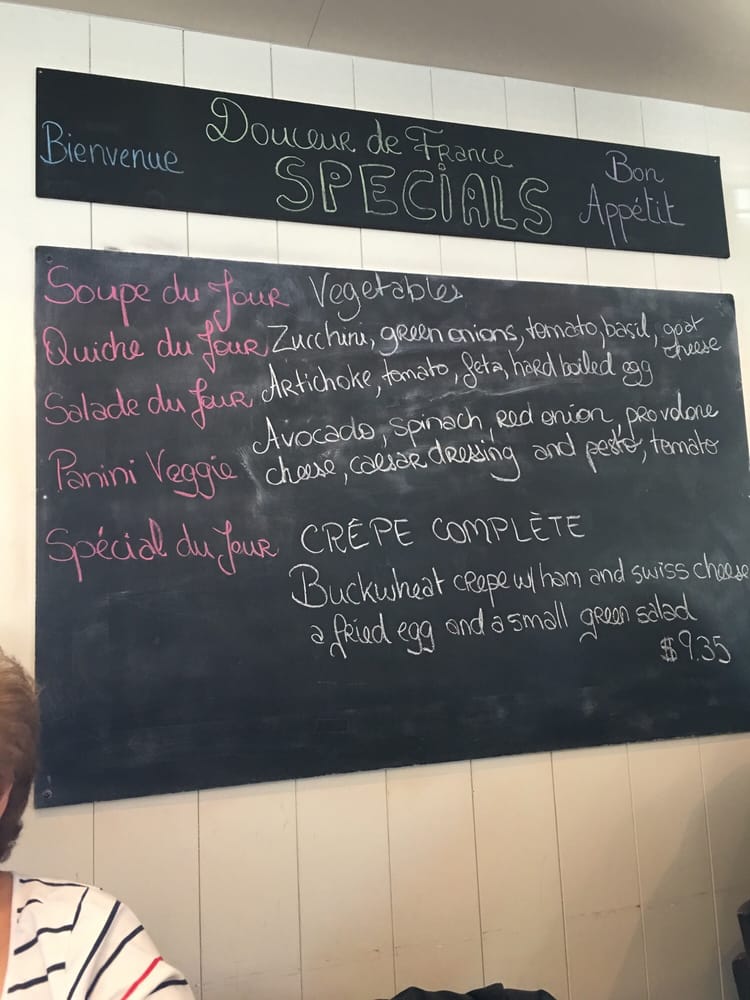 Bienvenue
Douceur de France
SPECIALS
Bon
Appétit
Soupe du Jour Vegetables
Quiche du Jour Zucchini, green onions, tomato, basil, goat
cheese
Salade du Jour Artichoke, tomato, feta, hard boiled egg
Panini Veggie Avocado, spinach, red onion, provolone
cheese, caesar dressing and pesto, tomato
Spécial du Jour CRÊPE COMPLÈTE
Buckwheat crepe w/ ham and swiss cheese
a fried egg and a small green salad
$9.35